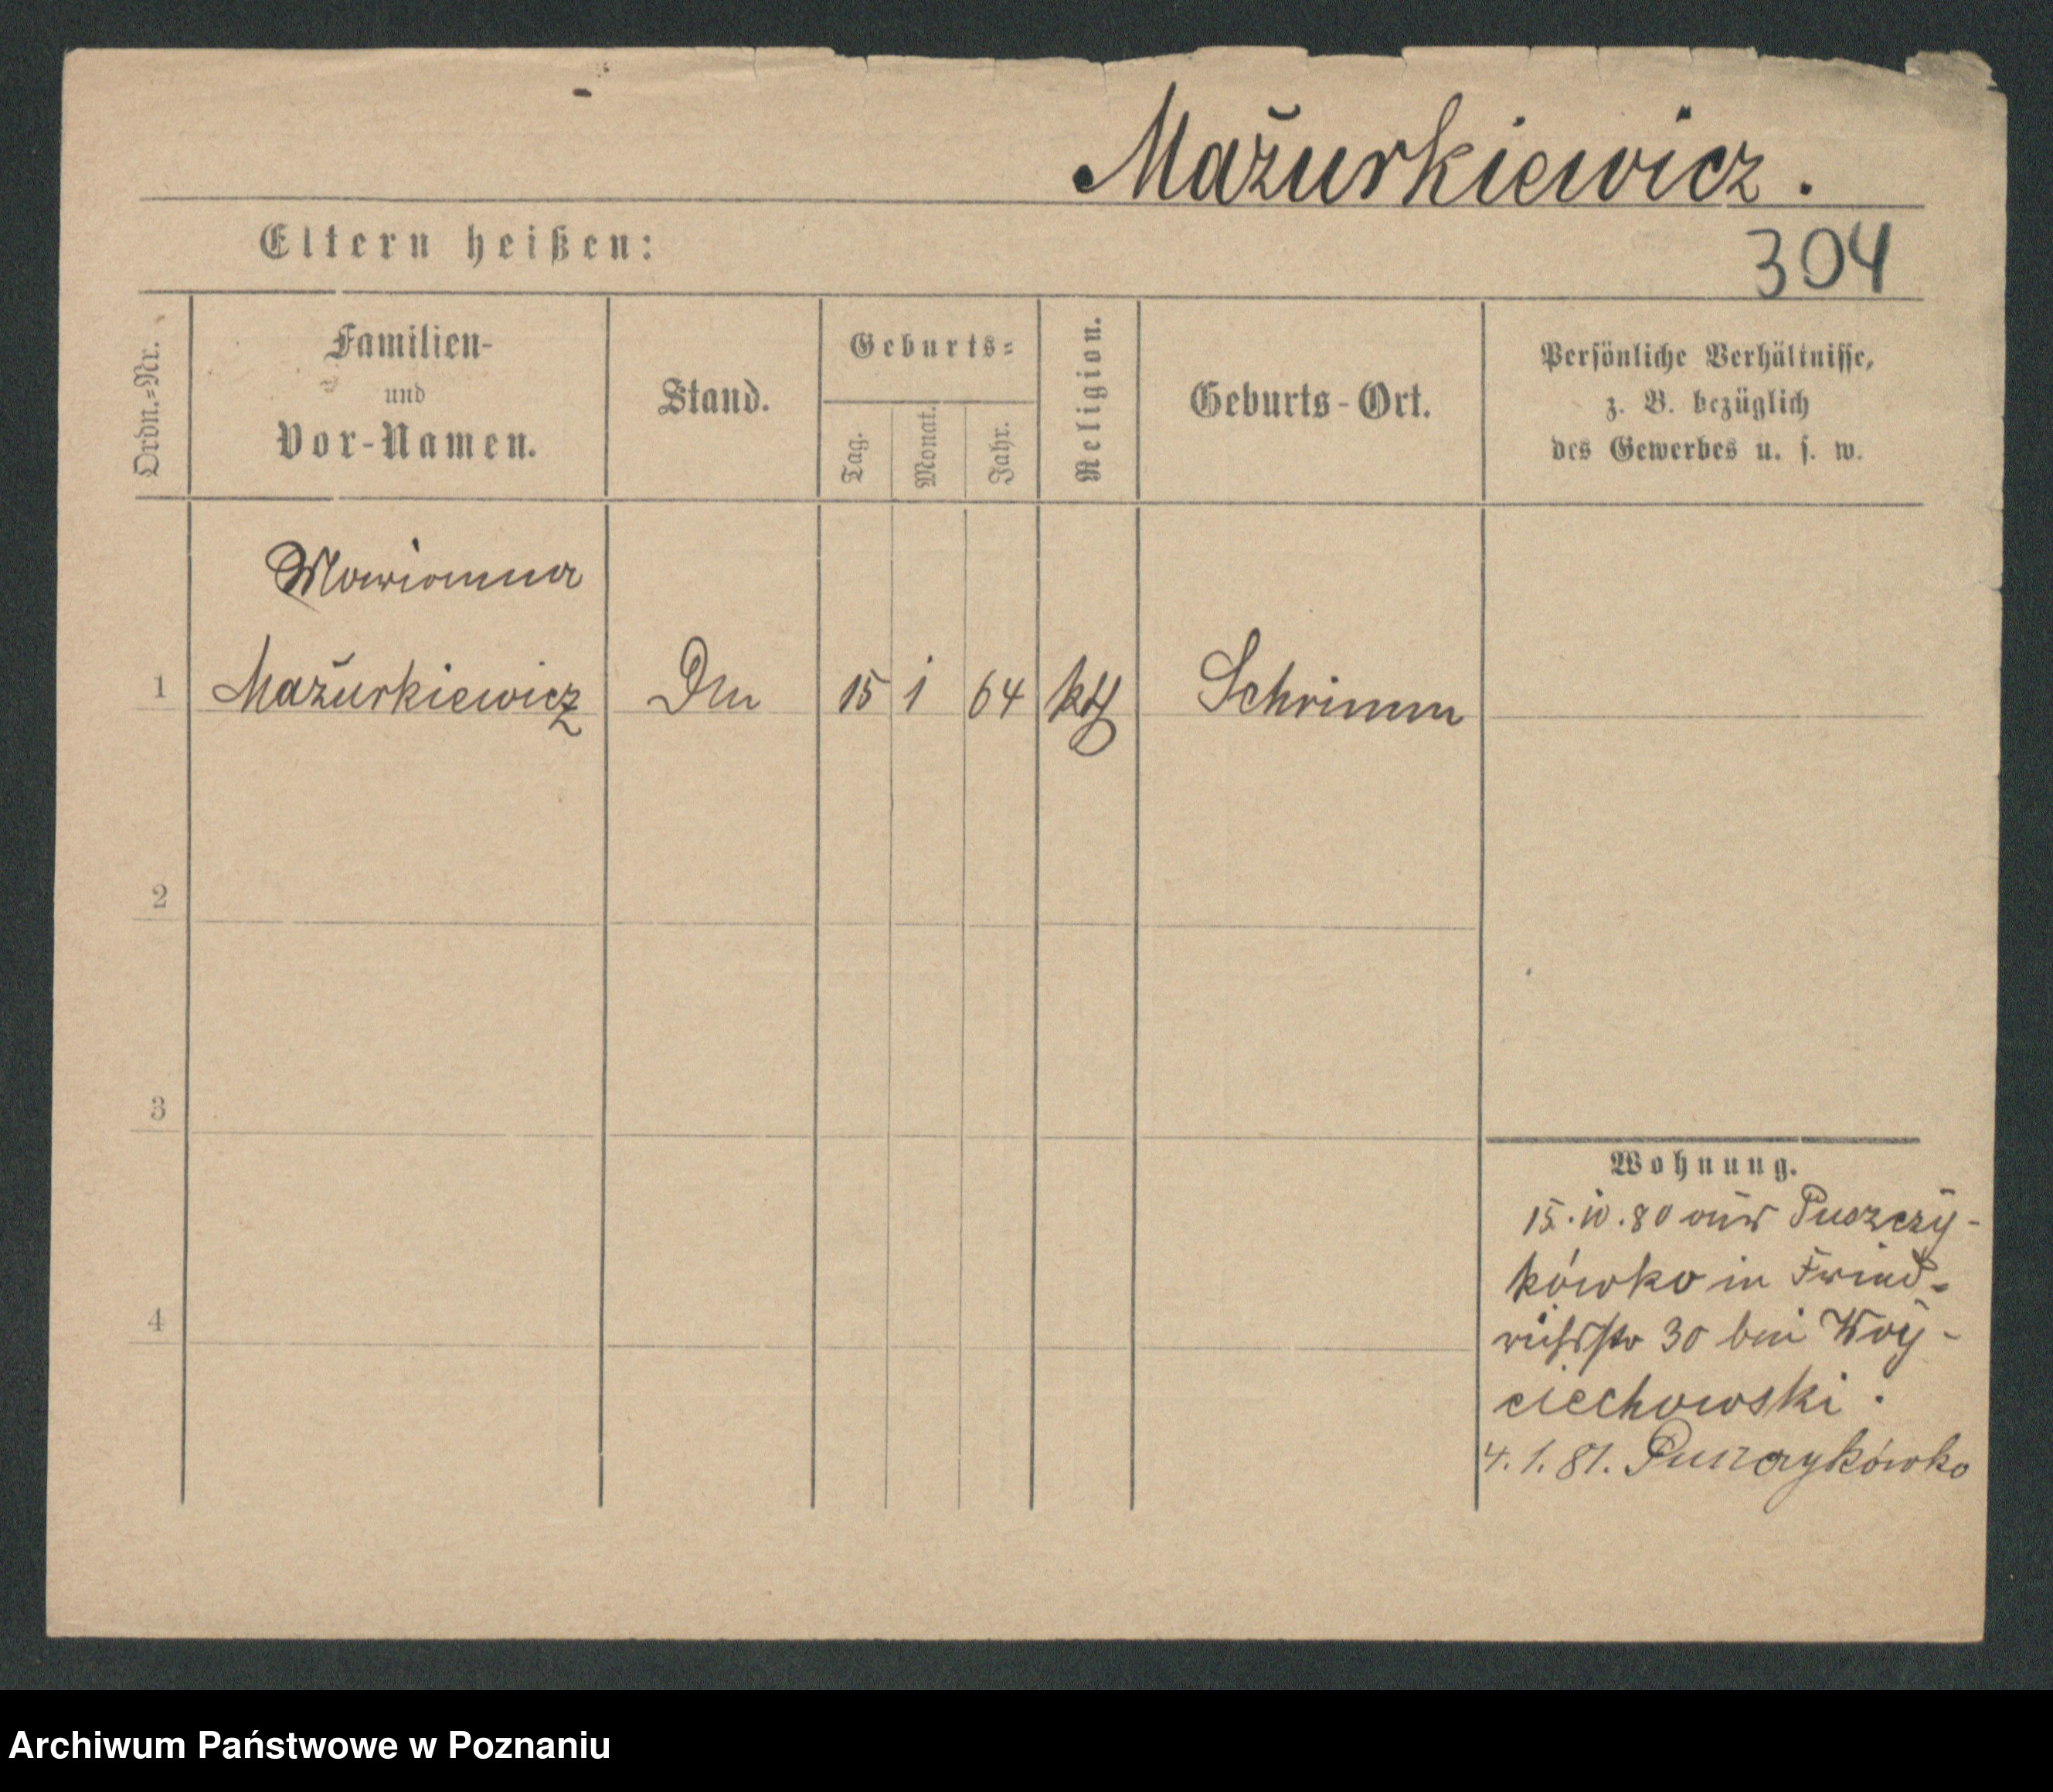 Mažurkiewicz.
Eltern heißen:
304
Ordn.=Nr.
Familien-
und
Vor-Namen.
Stand.
Geburts=
Tag.
Monat.
Jahr.
Religion.
Geburts-Ort.
Persönliche Verhältnisse,
z. B. bezüglich
des Gewerbes u. s. w.
Marianna
1 Mažurkiewicz Dm 15 1 64 kth Schrimm
2
3
4
Wohnung.
15.10.80 aus Puszczy-
kówko in Fried-
richsstr 30 bei Woy-
ciechowski.
4.1.81. Puszczykówko
Archiwum Państwowe w Poznaniu